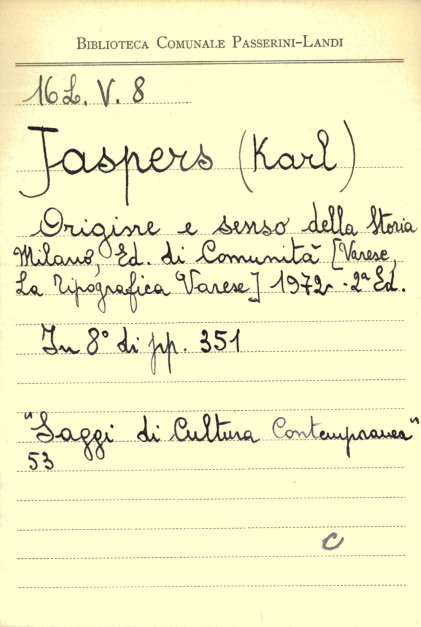 BIBLIOTECA COMUNALE PASSERINI-LANDI
16 L. V. 8
Jaspers (Karl)
Origine e senso della Storia
Milano, Ed. di Comunità [Varese,
La Tipografica Varese] 1972 - 2ª Ed.
In 8° di pp. 351
"Saggi di Cultura Contemporanea"
53
C